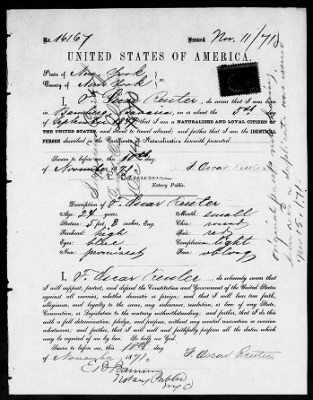 No. 16167 Issued Nov. 11/71
UNITED STATES OF AMERICA.
State of New York
County of New York
I, F. Oscar Reuter, do swear that I was born
in Bavaria, on or about the day
of September ; that I am a NATURALIZED AND LOYAL CITIZEN OF
THE UNITED STATES, and about to travel abroad; and further that I am the IDENTICAL
PERSON described in the Certificate of Naturalization herewith presented.
Sworn to before me, this 10th day
of November 1871. F. Oscar Reuter
Notary Public.
Description of F. Oscar Reuter
Age: 24 years Mouth: small
Stature: 5 feet 8 inches, Eng. Chin: round
Forehead: high Hair: red
Eyes: blue Complexion: light
Nose: prominent Face: oblong
I, F. Oscar Reuter, do solemnly swear that
I will support, protect, and defend the Constitution and Government of the United States
against all enemies, whether domestic or foreign; and that I will bear true faith,
allegiance, and loyalty to the same, any ordinance, resolution, or law of any State,
Convention, or Legislature to the contrary notwithstanding; and further, that I do this
with a full determination, pledge, and purpose, without any mental reservation or evasion
whatsoever; and further, that I will well and faithfully perform all the duties which
may be required of me by law. So help me God.
Sworn to before me, this 10th day
of November 1871. F. Oscar Reuter
Notary Public
N.Y.C.
a duplicate was issued
Nov. 15, 1871.